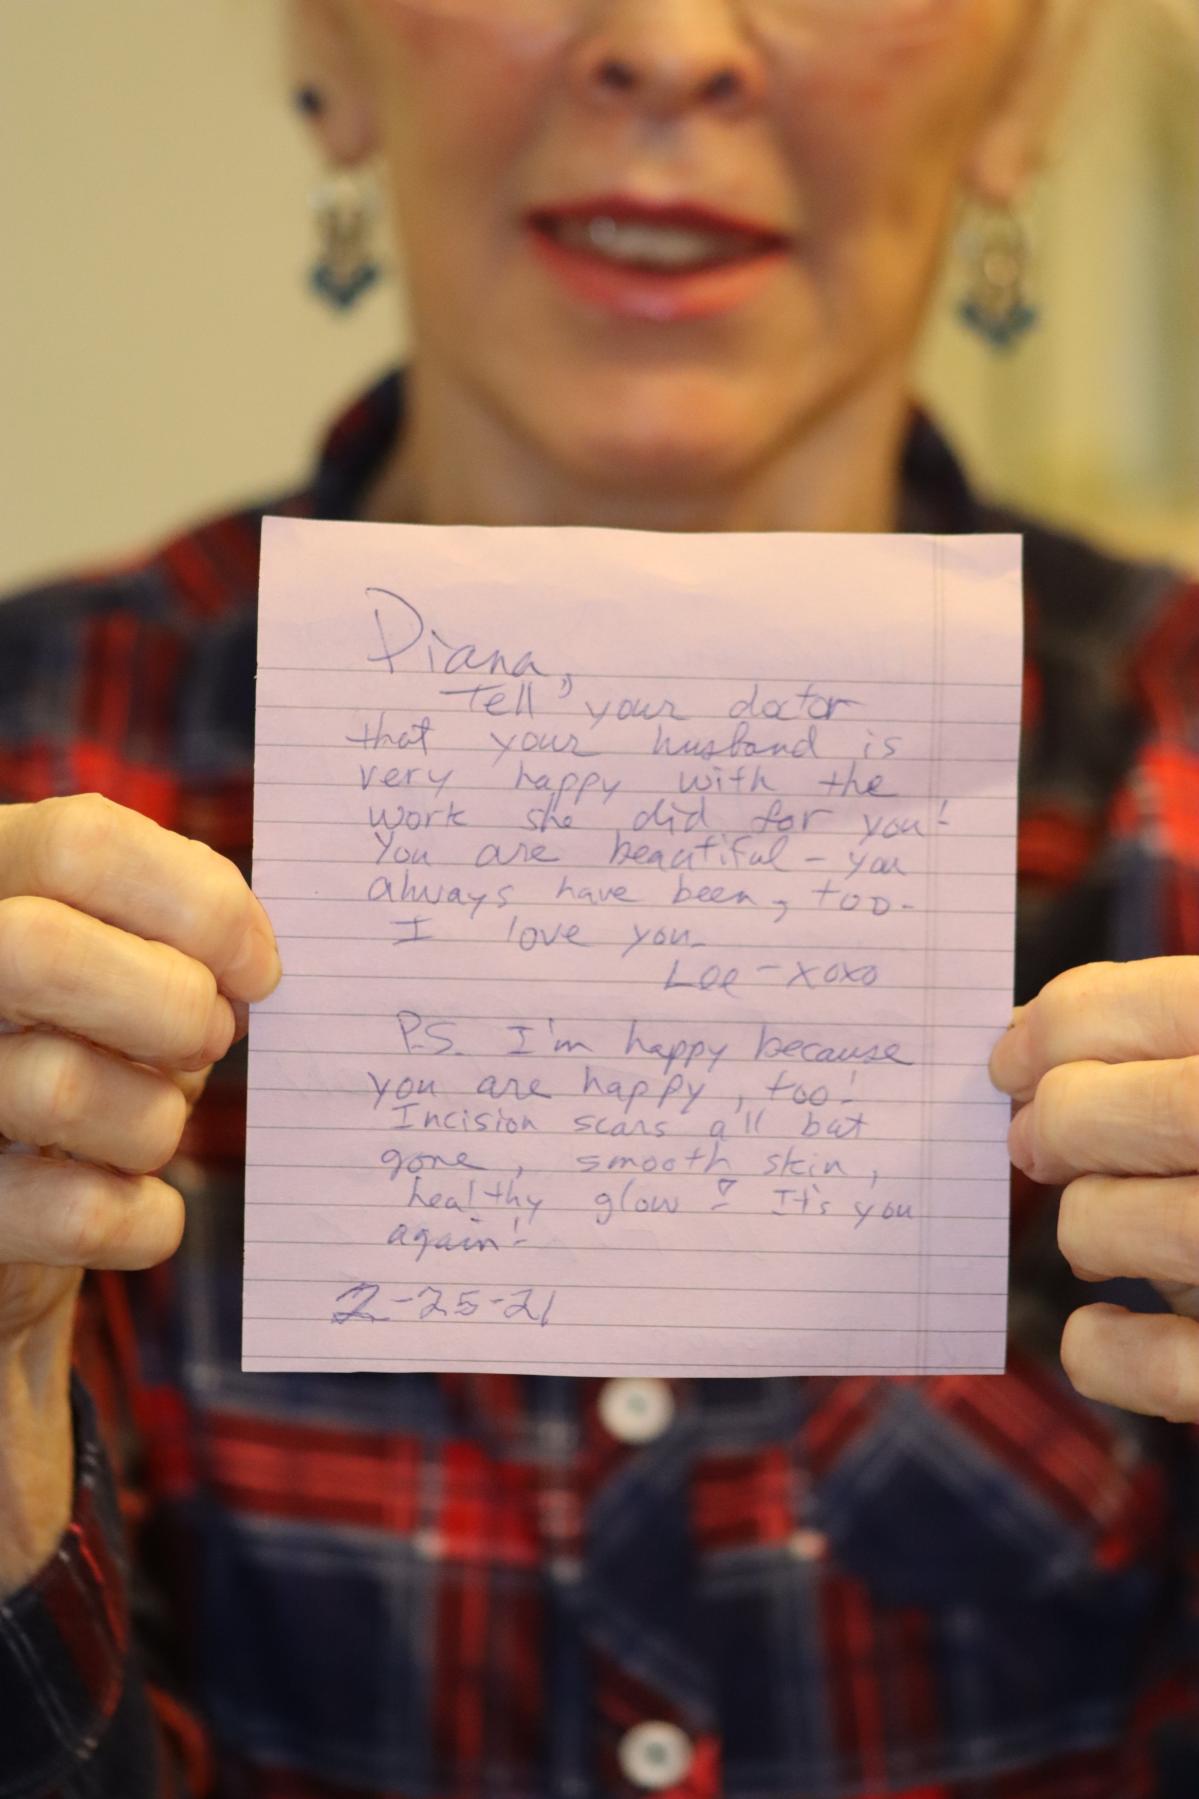 Diana,
Tell your doctor
that your husband is
very happy with the
work she did for you!
You are beautiful - you
always have been, too.
I love you.
Lee - xoxo
P.S. I'm happy because
you are happy, too!
Incision scars all but
gone, smooth skin,
healthy glow! It's you
again!
2-25-21